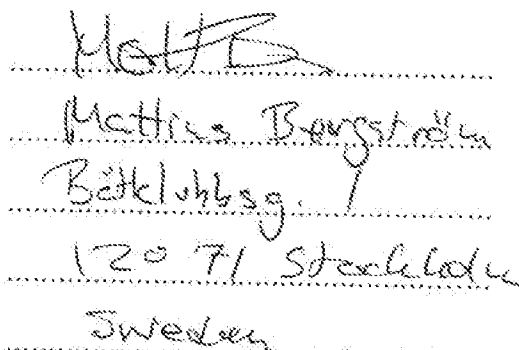 Mattias Bergström
Båtklubbsg. 1
120 71 Stockholm
Sweden